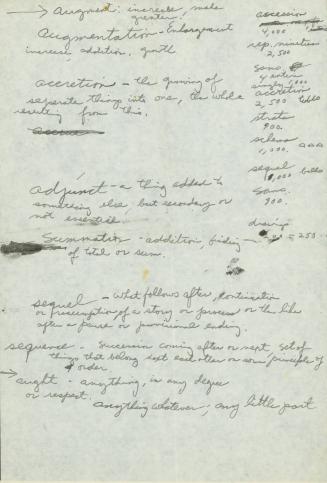 → Augment: increase, make
greater.
Augmentation - Enlargement
increase, addition. growth
accretion - the growing of
separate things into one, the whole
resulting from this.
adjunct - a thing added to
something else but secondary or
not essential.
Summation - addition, finding
of total or sum.
sequel - What follows after, continuation
or resumption of a story or process or the like
after a pause or provisional ending.
sequence - Succession coming after or next, set of
things that belong next each other on some principle of
order.
→ aught - anything, in any degree
or respect.
anything whatever; any little part
accession
4,000
rep. minutiae
2,500
same,
accretion
2,500
strata
900.
schema
1,000.
sequel
same.
900.
drawing
= 250